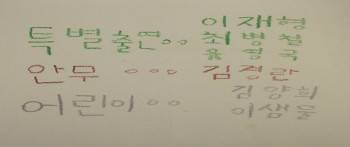 이재형
특별출연.. 최병철
용영국
안무 ... 김경란
김양희
어린이.. 이샘물